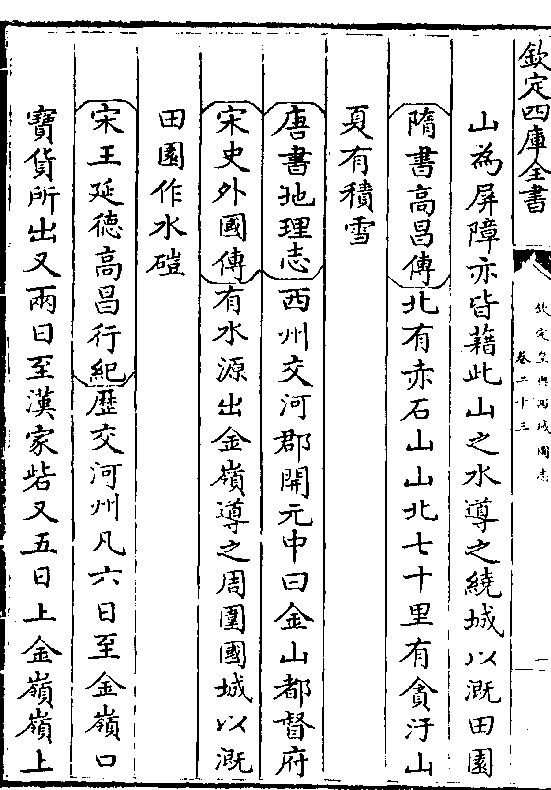 欽定四庫全書
欽定皇輿西域圖志
卷二十三
二
山為屏障亦皆藉此山之水導之繞城以溉田園
隋書高昌傳北有赤石山山北七十里有貪汙山
夏有積雪
唐書地理志西州交河郡開元中曰金山都督府
宋史外國傳有水源出金嶺導之周圍國城以溉
田園作水磑
宋王延德高昌行紀歷交河州凡六日至金嶺口
寶貨所出又兩日至漢家砦又五日上金嶺嶺上